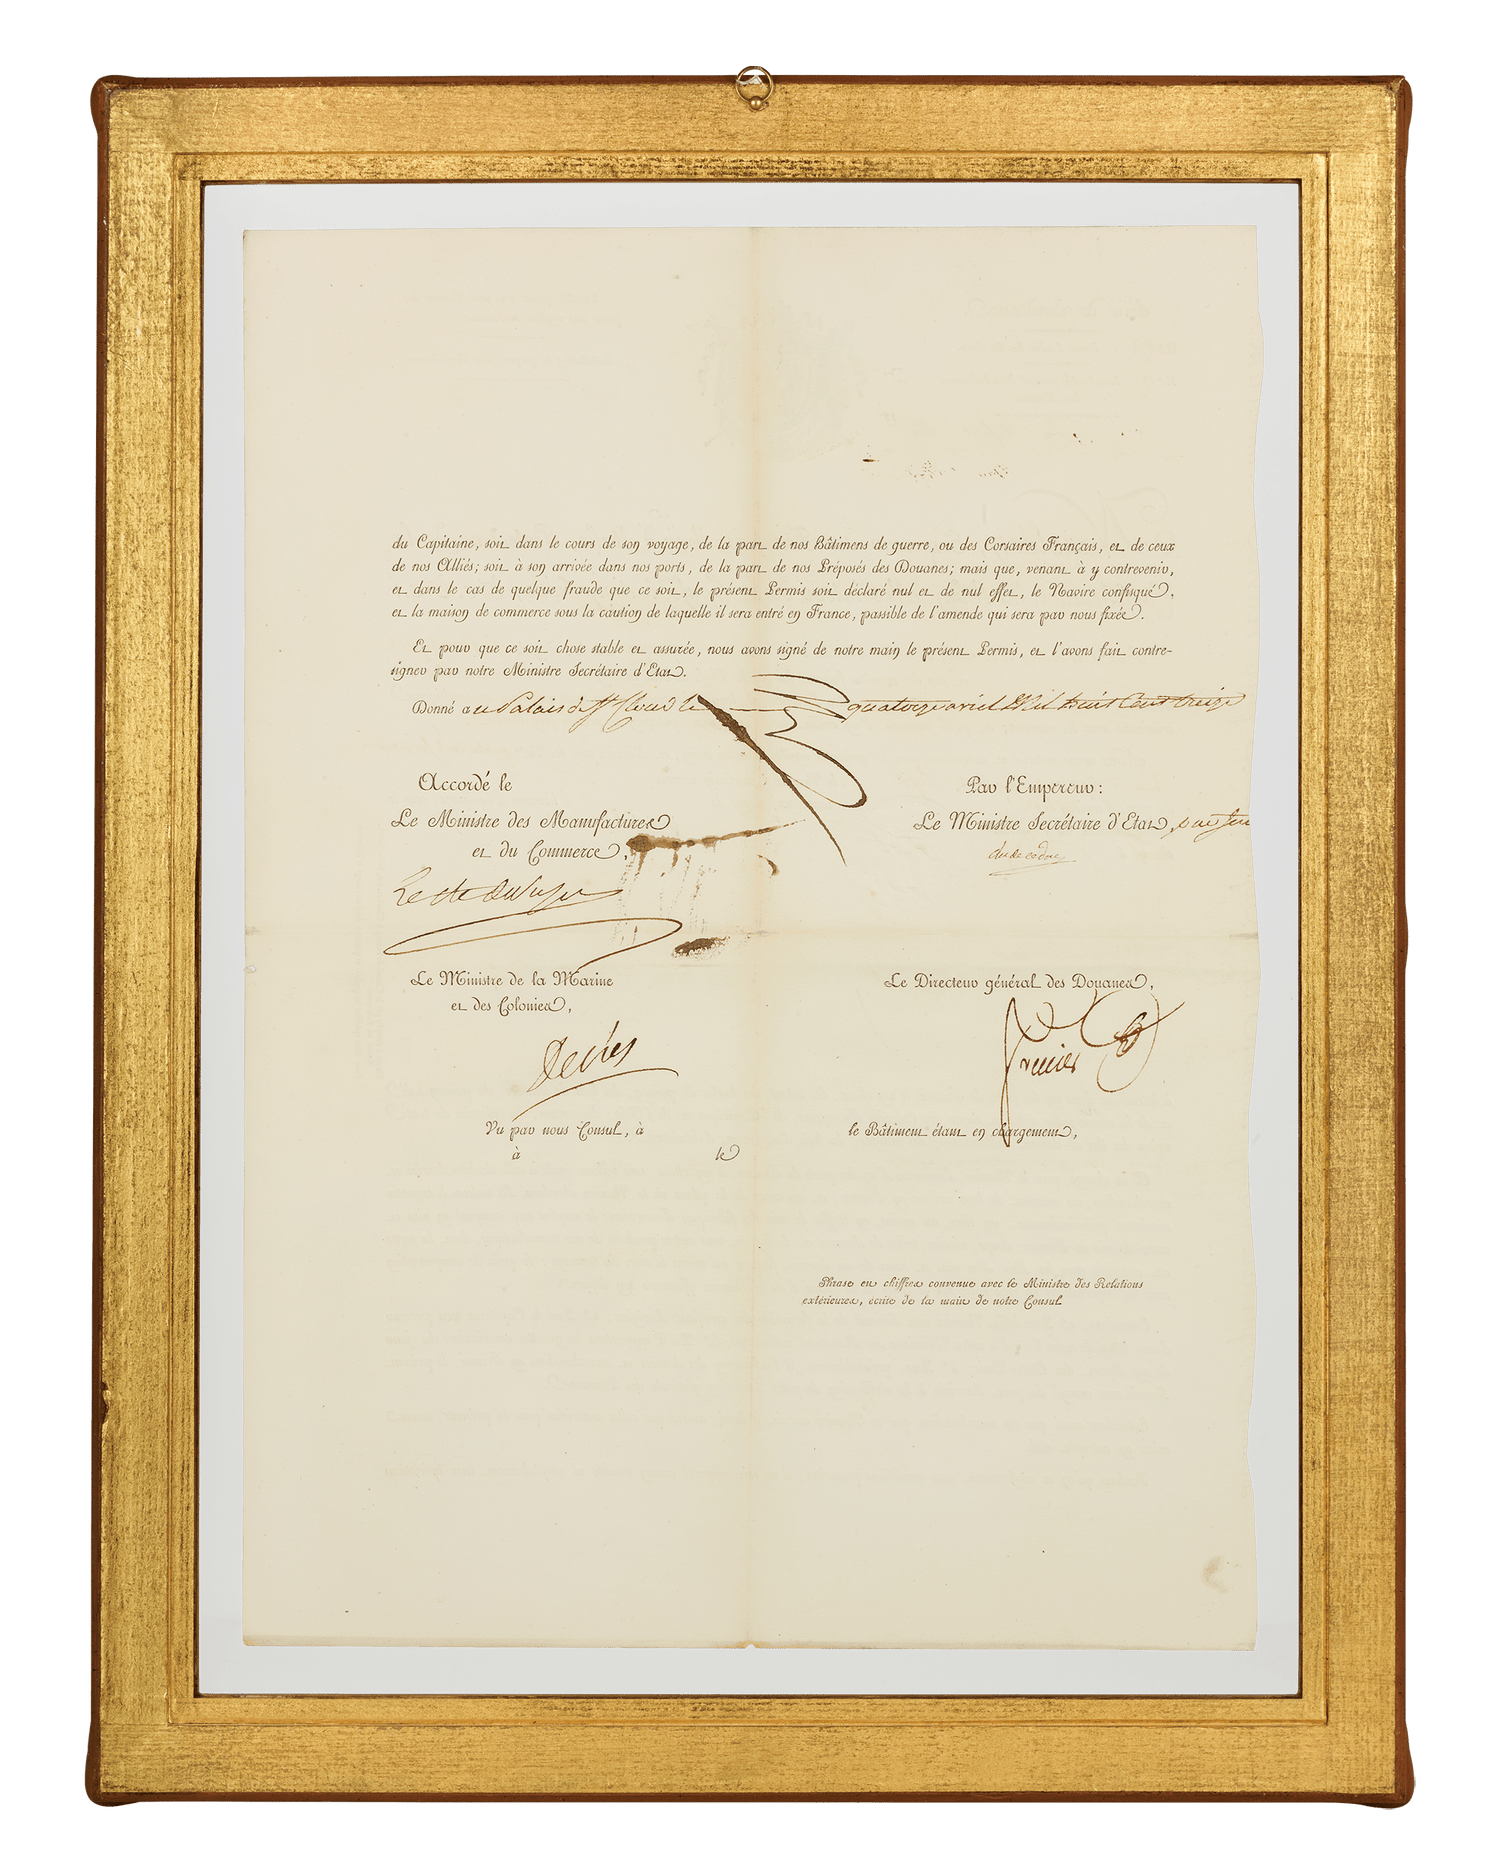 du Capitaine, soit dans le cours de son voyage, de la part de nos Bâtimens de guerre, ou des Corsaires Français, et de ceux
de nos Alliés; soit à son arrivée dans nos ports, de la part de nos Préposés des Douanes; mais que, venant à y contrevenir,
et dans le cas de quelque fraude que ce soit, le présent Permis soit déclaré nul et de nul effet, le Navire confisqué,
et la maison de commerce sous la caution de laquelle il sera entré en France, passible de l'amende qui sera par nous fixée.
Et pour que ce soit chose stable et assurée, nous avons signé de notre main le présent Permis, et l'avons fait contre-
signer par notre Ministre Secrétaire d'Etat.
Donné au Palais de St Cloud le quatorze avril Mil huit Cent treize
Accordé le
Par l'Empereur:
Le Ministre des Manufactures
et du Commerce,
Le Ministre Secrétaire d'Etat,
duc de cadore
Le Ministre de la Marine
et des Colonies,
Decrès
Le Directeur général des Douanes,
Vu par nous Consul, à
le Bâtiment étant en chargement,
à le
Phrase en chiffres convenue avec le Ministre des Relations
extérieures, écrite de la main de notre Consul